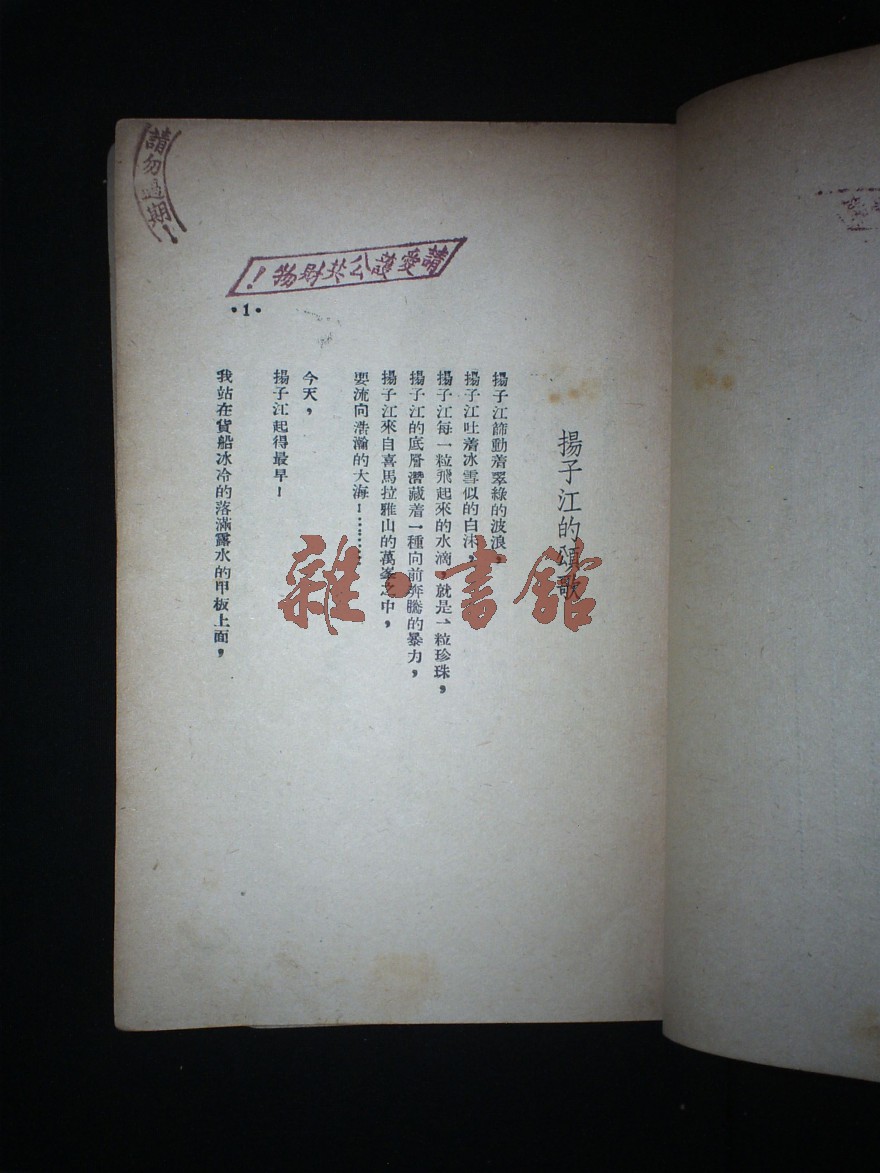 請勿過期！
請愛護公共財物！
•1•
揚子江的頌歌
揚子江篩動着翠綠的波浪，
揚子江吐着冰雪似的白沫，
揚子江每一粒飛起來的水滴，就是一粒珍珠，
揚子江的底層潛藏着一種向前奔騰的暴力，
揚子江來自喜馬拉雅山的萬峯之中，
要流向浩瀚的大海！………
今天，
揚子江起得最早！
我站在貨船冰冷的落滿露水的甲板上面，
雜·書館